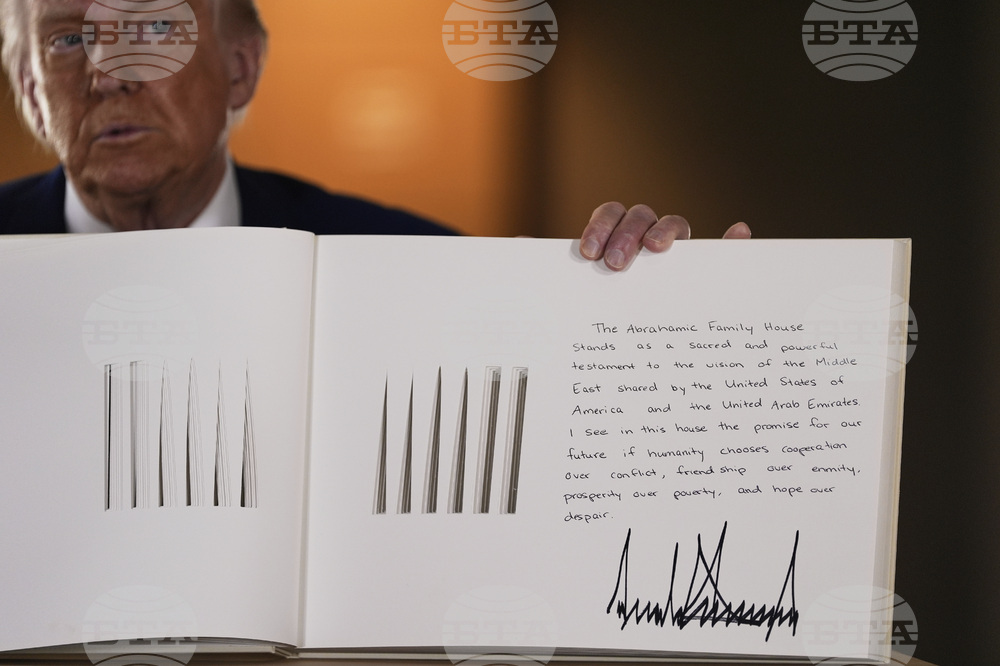 БТА
БТА
БТА
The Abrahamic Family House
Stands as a sacred and powerful
testament to the vision of the Middle
East shared by the United States of
America and the United Arab Emirates.
I see in this house the promise for our
future if humanity chooses cooperation
over conflict, friendship over enmity,
prosperity over poverty, and hope over
despair.
БТА
БТА
БТА
БТА
БТА